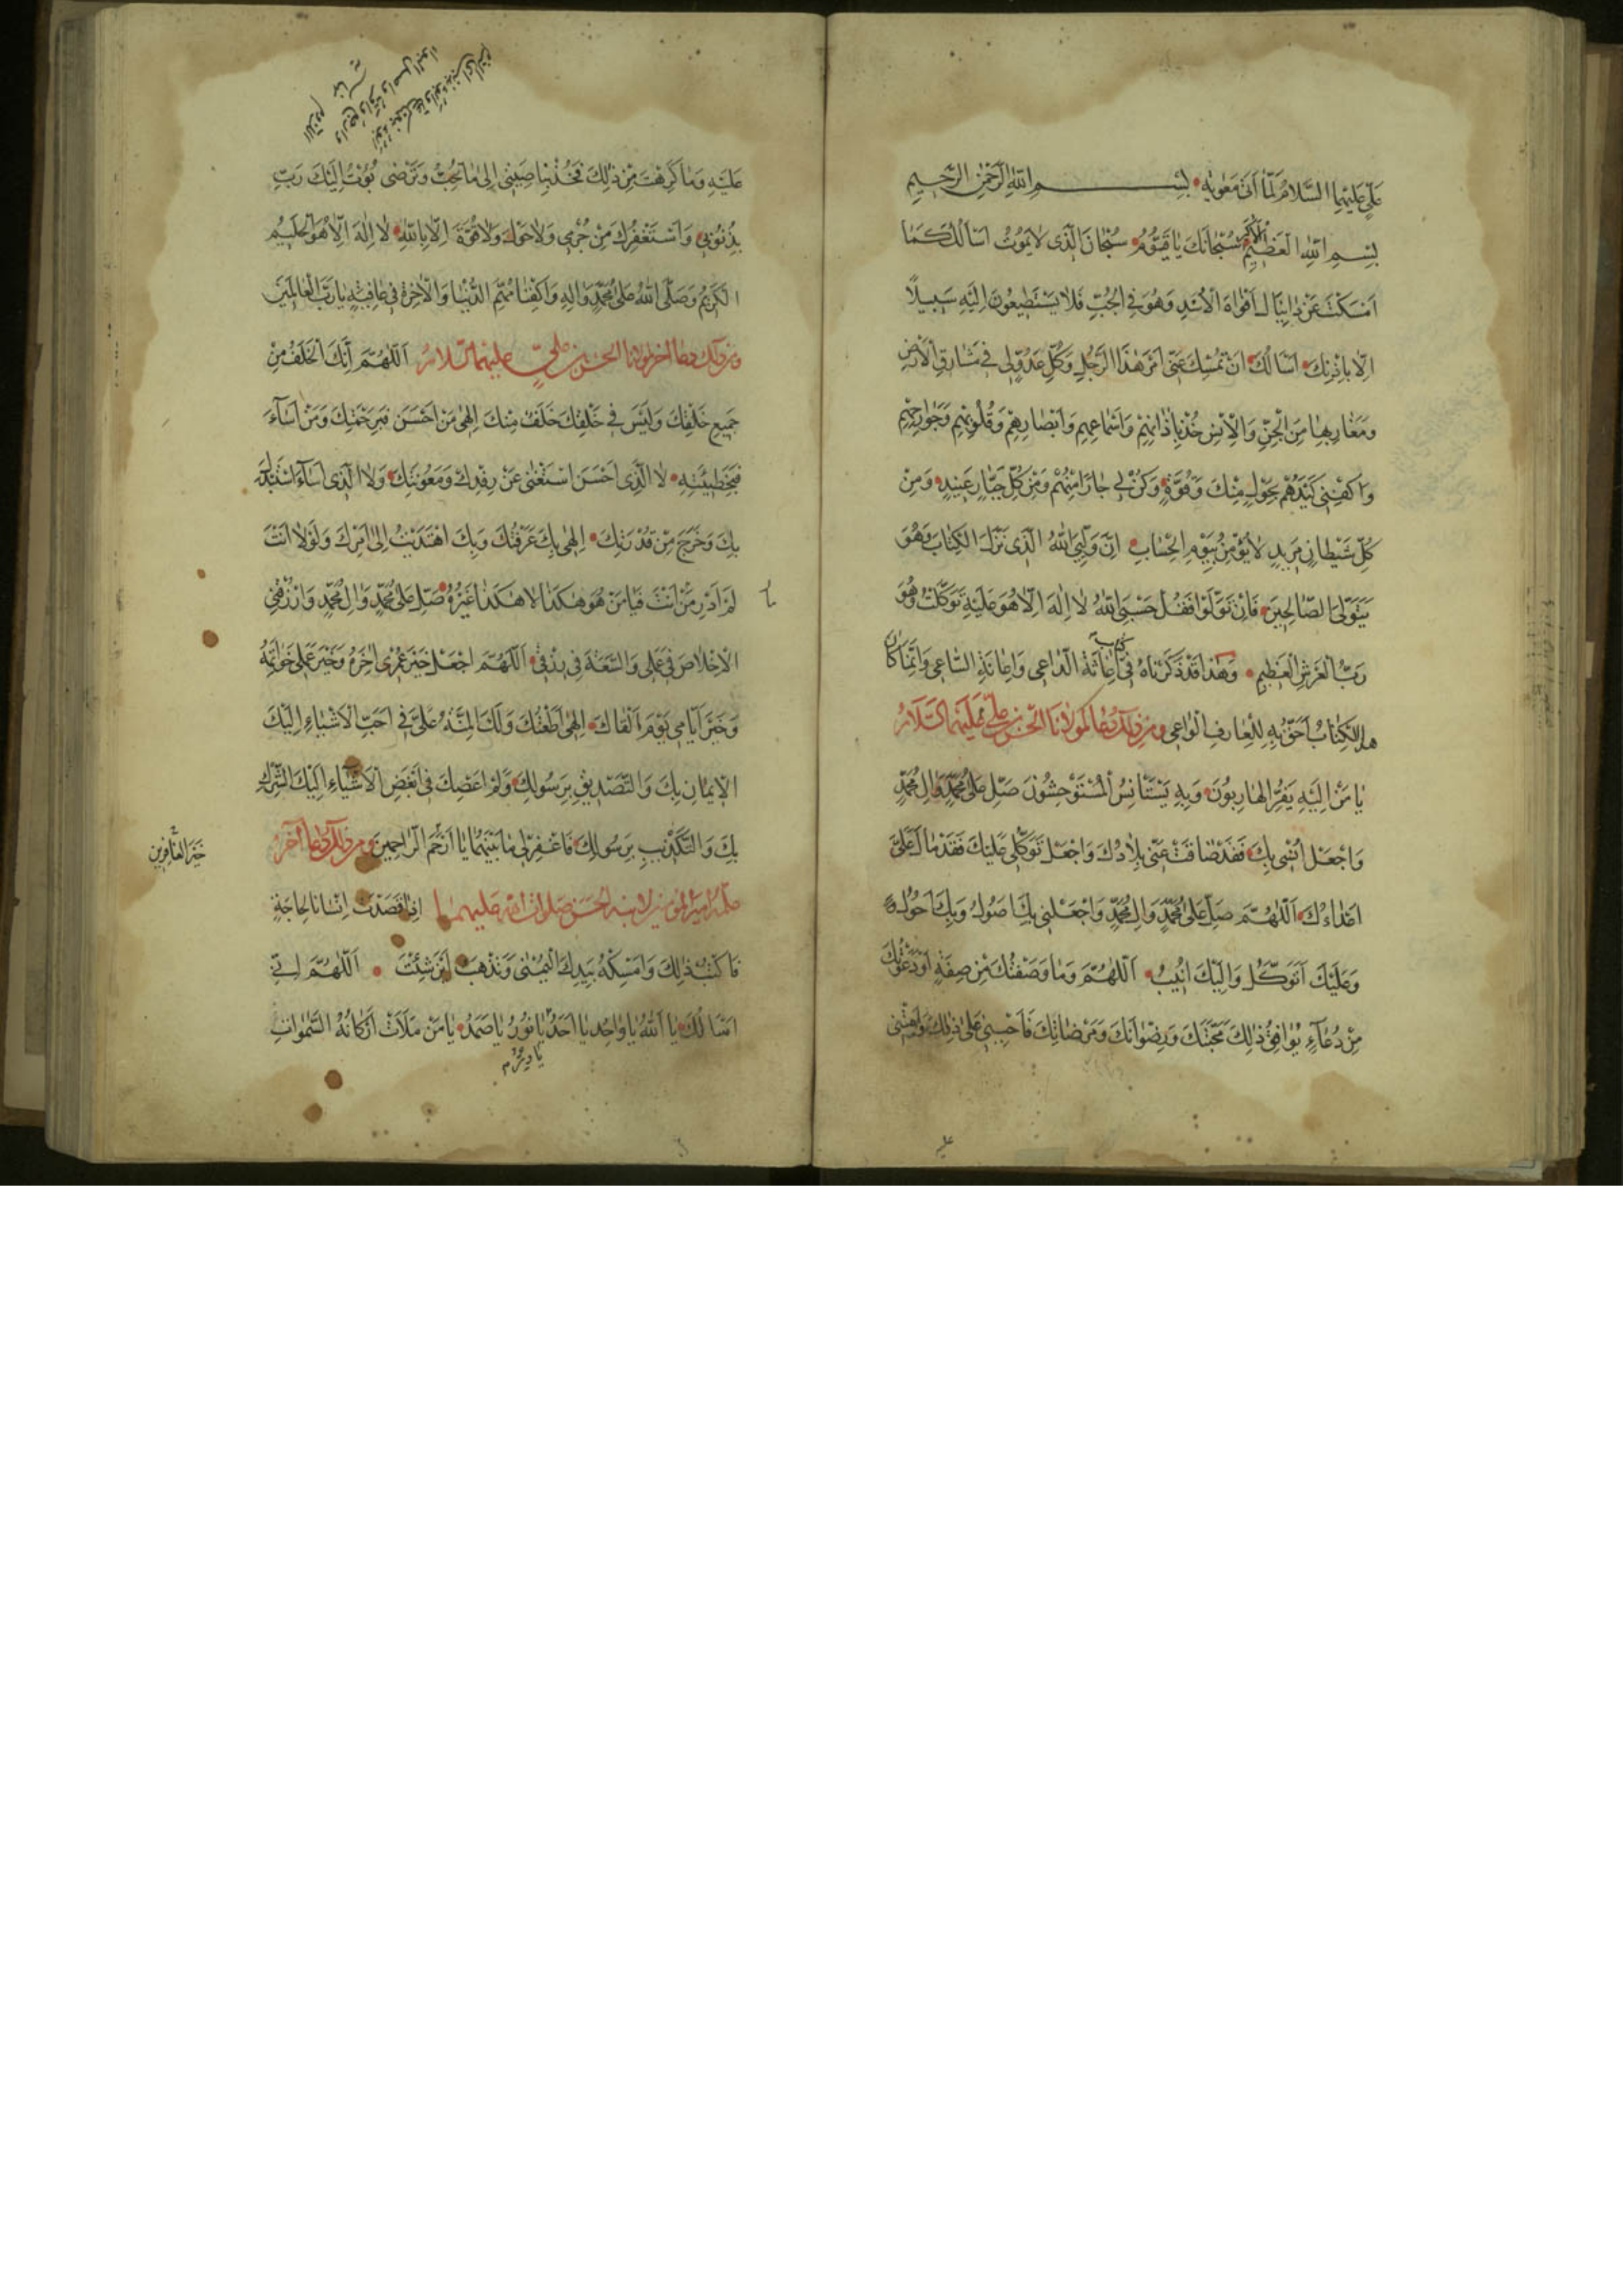 عَلِيٍّ عَلَيْهِمَا السَّلامُ لَمَّا اَتىٰ مَعٰوِيَةَ بِسْمِ اللّٰهِ الرَّحْمٰنِ الرَّحيمِ
بِسْمِ اللّٰهِ الْعَظيمِ الْاَكْبَرِ سُبْحٰانَكَ يٰا قَيُّومُ سُبْحٰانَ الَّذى لا يَمُوتُ اَسْاَلُكَ كَمٰا
اَمْسَكْتَ عَنْ دٰانِيٰالَ اَفْوٰاهَ الْاُسْدِ وَهُوَ فِى الْجُبِّ فَلا يَسْتَطيعُونَ اِلَيْهِ سَبيلًا
اِلّا بِاِذْنِكَ اَسْاَلُكَ اَنْ تُمْسِكَ عَنّى اَمْرَ هٰذَا الرَّجُلِ وَكُلِّ عَدُوٍّ لى فى مَشٰارِقِ الْاَرْضِ
وَمَغٰارِبِهٰا مِنَ الْجِنِّ وَالْاِنْسِ خُذْ بِاٰذٰانِهِمْ وَاَسْمٰاعِهِمْ وَاَبْصٰارِهِمْ وَقُلُوبِهِمْ وَجَوٰارِحِهِمْ
وَاكْفِنى كَيْدَهُمْ بِحَوْلٍ مِنْكَ وَقُوَّةٍ وَكُنْ لى جٰارًا مِنْهُمْ وَمِنْ كُلِّ جَبّٰارٍ عَنيدٍ وَمِنْ
كُلِّ شَيْطٰانٍ مَريدٍ لا يُؤْمِنُ بِيَوْمِ الْحِسٰابِ اِنَّ وَلِيِّىَ اللّٰهُ الَّذى نَزَّلَ الْكِتٰابَ وَهُوَ
يَتَوَلَّى الصّٰالِحينَ فَاِنْ تَوَلَّوْا فَقُلْ حَسْبِىَ اللّٰهُ لا اِلٰهَ اِلّا هُوَ عَلَيْهِ تَوَكَّلْتُ وَهُوَ
رَبُّ الْعَرْشِ الْعَظيمِ وَهٰذا قَدْ ذَكَرْنٰاهُ فى كتاب اِغٰاثَةِ الدّٰاعى وَاِعٰانَةِ السّٰاعى وَاِنَّمٰا كٰانَ
هذا الْكِتٰابُ اَحَقَّ بِهِ لِلْعٰارِفِ الْوٰاعى ومن ذلك دعا لمولانا الحسن بن علي عليهما السلام
يٰا مَنْ اِلَيْهِ يَفِرُّ الْهٰارِبُونَ وَبِهِ يَسْتَاْنِسُ الْمُسْتَوْحِشُونَ صَلِّ عَلىٰ مُحَمَّدٍ وَاٰلِ مُحَمَّدٍ
وَاجْعَلْ اُنْسى بِكَ فَقَدْ ضٰاقَتْ عَنّى بِلٰادُكَ وَاجْعَلْ تَوَكُّلى عَلَيْكَ فَقَدْ مٰالَ عَلَىَّ
اَعْدٰاءُكَ اَللّٰهُمَّ صَلِّ عَلىٰ مُحَمَّدٍ وَاٰلِ مُحَمَّدٍ وَاجْعَلْنى بِكَ اَصُولُ وَبِكَ اَحُولُ
وَعَلَيْكَ اَتَوَكَّلُ وَاِلَيْكَ اُنيبُ اَللّٰهُمَّ وَمٰا وَصَفْتُكَ مِنْ صِفَةٍ اَوْ دَعَوْتُكَ
مِنْ دُعٰاءٍ يُوٰافِقُ ذٰلِكَ مَحَبَّتَكَ وَرِضْوٰانَكَ وَمَرْضٰاتِكَ فَاَحْيِنى عَلىٰ ذٰلِكَ وَاَمِتْنى
عَلَيْهِ وَمٰا كَرِهْتَ مِنْ ذٰلِكَ فَخُذْ بِنٰاصِيَتى اِلىٰ مٰا تُحِبُّ وَتَرْضى بُؤْتُ اِلَيْكَ رَبِّ
بِذُنُوبى وَاَسْتَغْفِرُكَ مِنْ جُرْمى وَلا حَوْلَ وَلا قُوَّةَ اِلّا بِاللّٰهِ لا اِلٰهَ اِلّا هُوَ الْحَليمُ
الْكَريمُ وَصَلَّى اللّٰهُ عَلىٰ مُحَمَّدٍ وَاٰلِهِ وَاكْفِنٰا مُهِمَّ الدُّنْيٰا وَالْاٰخِرَةِ فى عٰافِيَةٍ يٰا رَبَّ الْعٰالَمينَ
ومن ذلك دعا اخر لمولانا الحسن بن علي عليهما السلام اَللّٰهُمَّ اِنَّكَ الْخَلَفُ مِنْ
جَميعِ خَلْقِكَ وَلَيْسَ فى خَلْقِكَ خَلَفٌ مِنْكَ اِلٰهى مَنْ اَحْسَنَ فَبِرَحْمَتِكَ وَمَنْ اَسٰاءَ
فَبِخَطيئَتِهِ لا الَّذى اَحْسَنَ اسْتَغْنىٰ عَنْ رِفْدِكَ وَمَعُونَتِكَ وَلا الَّذى اَسٰاءَ اسْتَبْدَلَ
بِكَ وَخَرَجَ مِنْ قُدْرَتِكَ اِلٰهى بِكَ عَرَفْتُكَ وَبِكَ اهْتَدَيْتُ اِلىٰ اَمْرِكَ وَلَوْلا اَنْتَ
لَمْ اَدْرِ مٰا اَنْتَ فَيٰا مَنْ هُوَ هٰكَذٰا لا هٰكَذٰا غَيْرُهُ صَلِّ عَلىٰ مُحَمَّدٍ وَاٰلِ مُحَمَّدٍ وَارْزُقْنى
الْاِخْلاصَ فى عَمَلى وَالسَّعَةَ فى رِزْقى اَللّٰهُمَّ اجْعَلْ خَيْرَ عُمْرى اٰخِرَهُ وَخَيْرَ عَمَلى خَوٰاتِمَهُ
وَخَيْرَ اَيّٰامى يَوْمَ اَلْقٰاكَ اِلٰهى اَطَعْتُكَ وَلَكَ الْمِنَّةُ عَلَىَّ فى اَحَبِّ الْاَشْيٰاءِ اِلَيْكَ
الْاِيمٰانِ بِكَ وَالتَّصْديقِ بِرَسُولِكَ وَلَمْ اَعْصِكَ فى اَبْغَضِ الْاَشْيٰاءِ اِلَيْكَ الشِّرْكِ
بِكَ وَالتَّكْذيبِ بِرَسُولِكَ فَاغْفِرْ لى مٰا بَيْنَهُمٰا يٰا اَرْحَمَ الرّٰاحِمينَ ومن ذلك دعا آخر
علمه امير المؤمنين لابنه الحسن صلوات الله عليهما اِذٰا قَصَدْتَ اِنْسٰانًا لِحٰاجَةٍ
فَاكْتُبْ ذٰلِكَ وَاَمْسِكْهُ بِيَدِكَ الْيُمْنٰى وَتَذْهَبُ اَيْنَ شِئْتَ اَللّٰهُمَّ اِنّى
اَسْاَلُكَ يٰا اَللّٰهُ يٰا وٰاحِدُ يٰا اَحَدُ يٰا نُورُ يٰا صَمَدُ يٰا مَنْ مَلَاَتْ اَرْكٰانُهُ السَّمٰوٰاتِ
خَيْرَ الْغٰافِرينَ